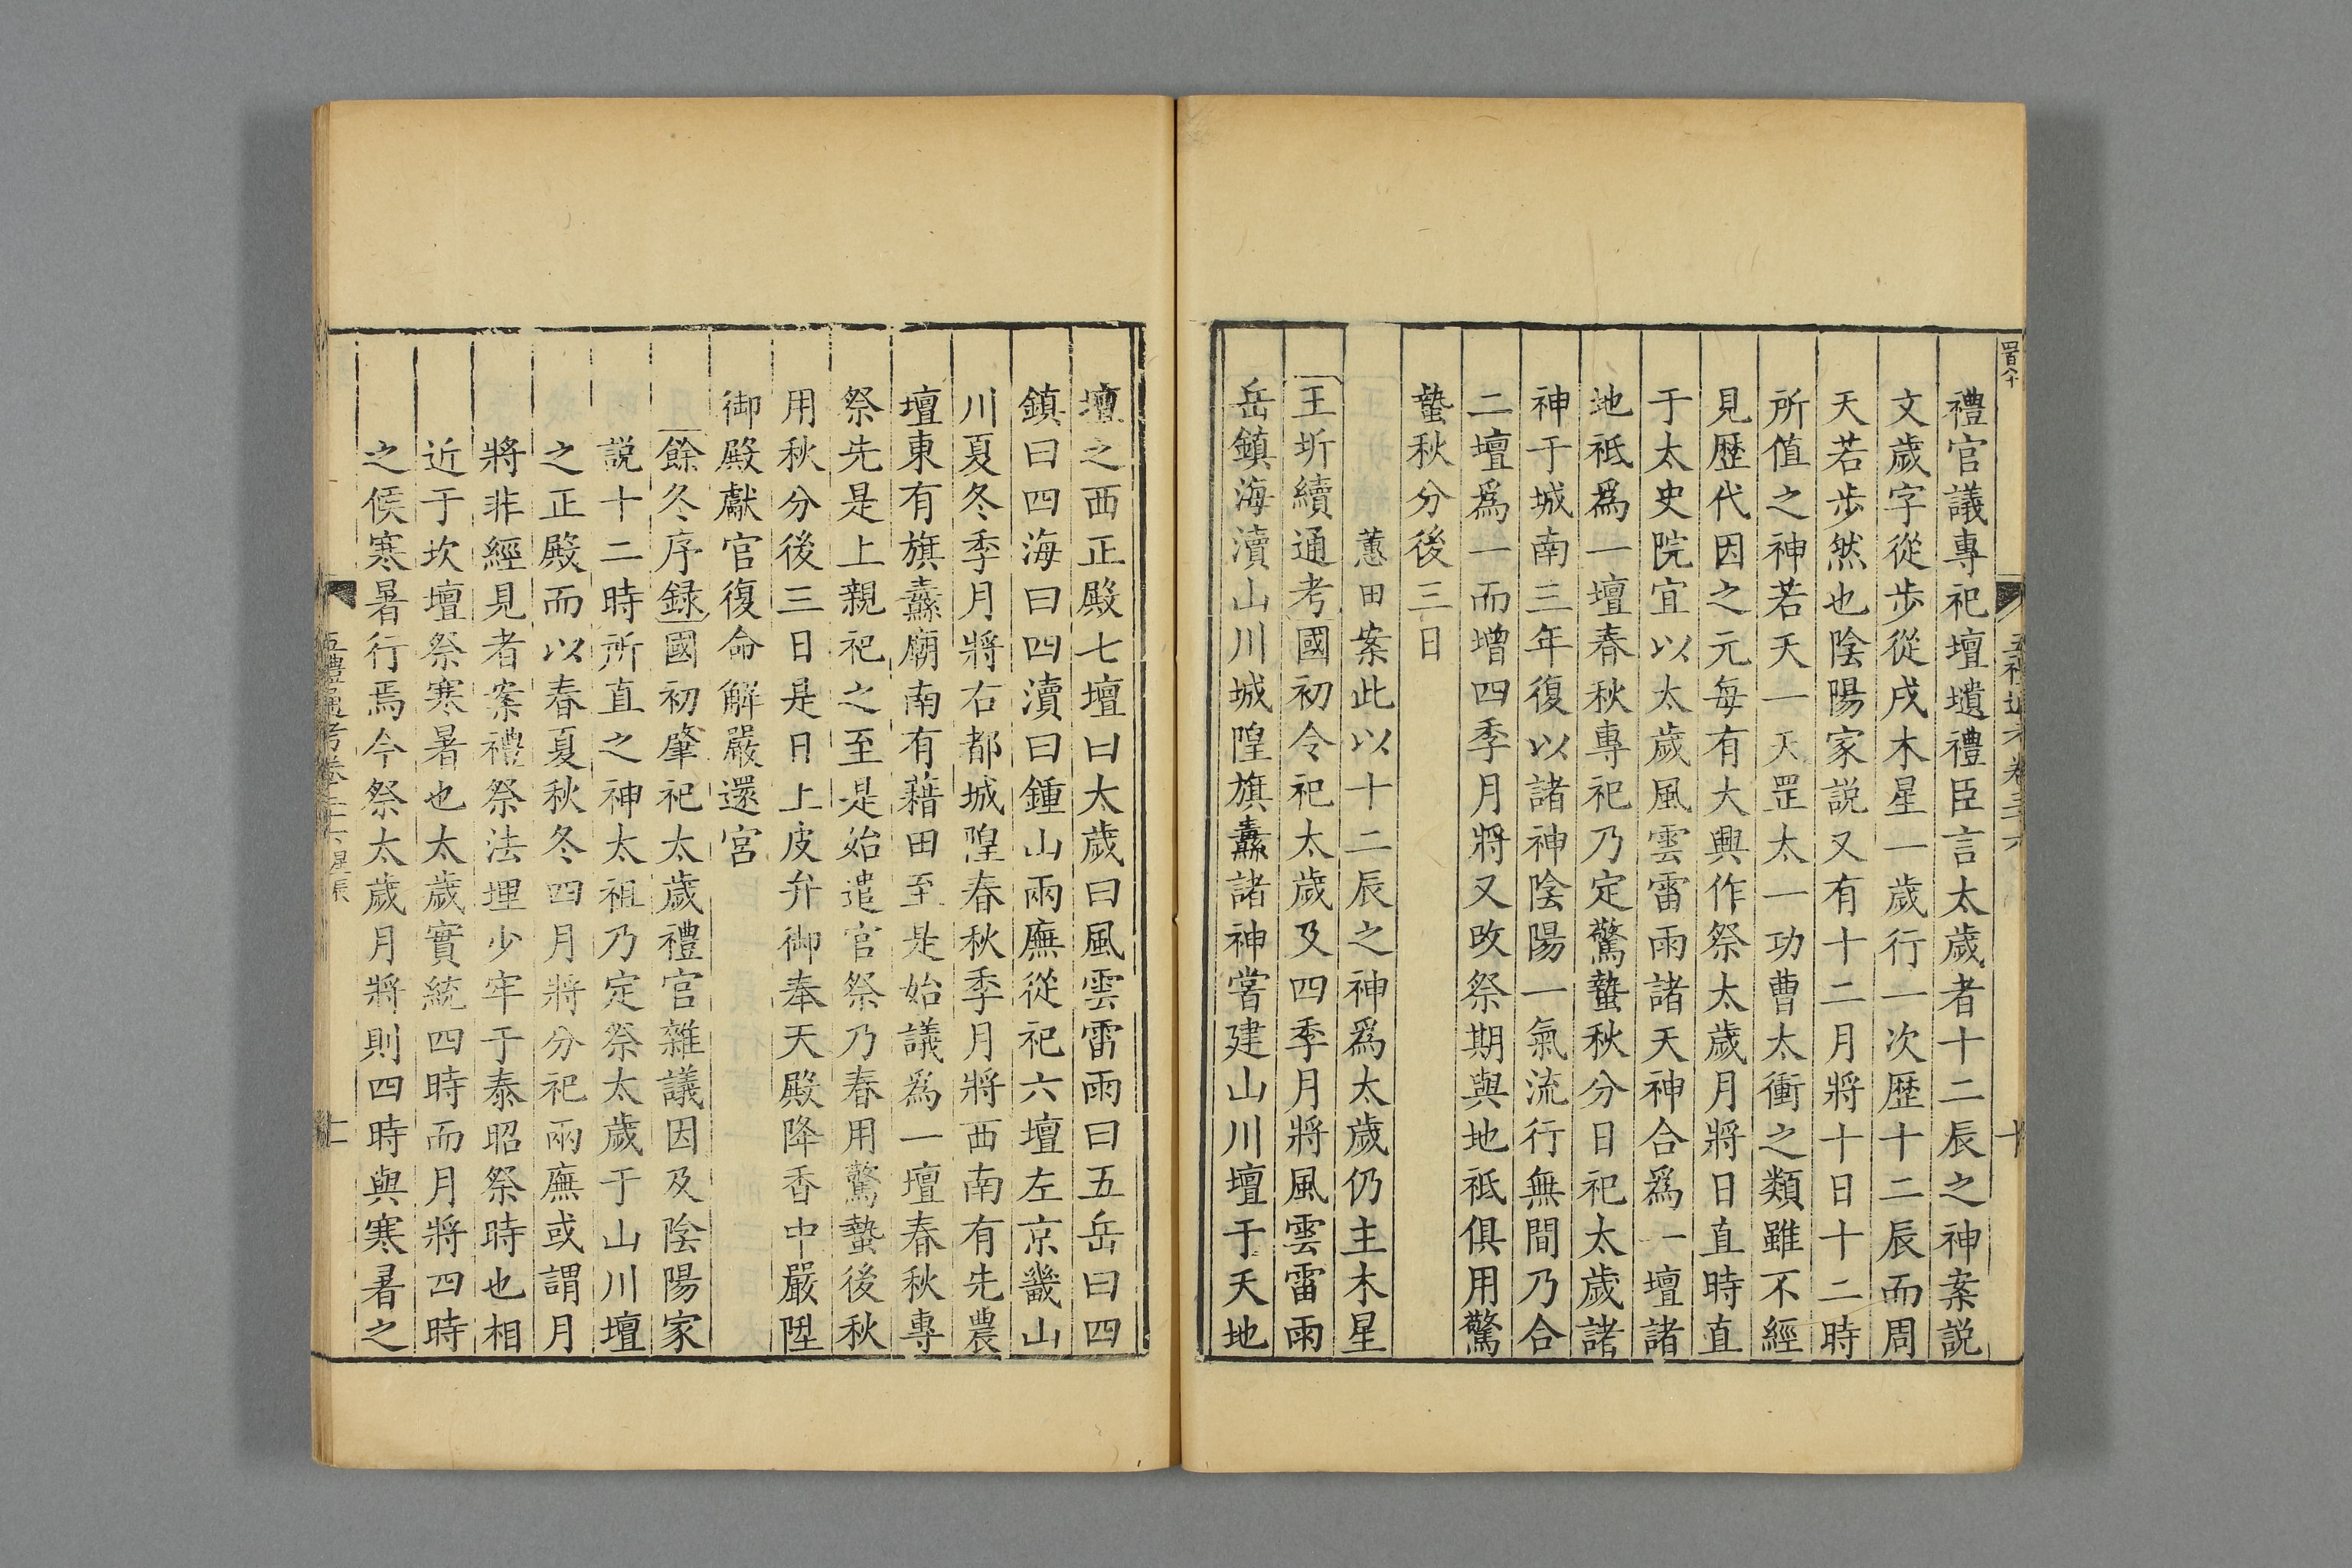 禮官議專祀壇壝禮臣言太歲者十二辰之神案説
文歲字從步從戌木星一歲行一次歴十二辰而周
天若步然也陰陽家説又有十二月將十日十二時
所值之神若天一天罡太一功曹太衝之類雖不經
見歴代因之元每有大興作祭太歲月將日直時直
于太史院宜以太歲風雲雷雨諸天神合爲一壇諸
地祇爲一壇春秋專祀乃定驚蟄秋分日祀太歲諸
神于城南三年復以諸神陰陽一氣流行無間乃合
二壇爲一而增四季月將又改祭期與地祇俱用驚
蟄秋分後三日
蕙田案此以十二辰之神爲太歲仍主木星
王圻續通考國初令祀太歲及四季月將風雲雷雨
岳鎮海瀆山川城隍旗纛諸神嘗建山川壇于天地
壇之西正殿七壇曰太歲曰風雲雷雨曰五岳曰四
鎮曰四海曰四瀆曰鍾山兩廡從祀六壇左京畿山
川夏冬季月將右都城隍春秋季月將西南有先農
壇東有旗纛廟南有藉田至是始議爲一壇春秋專
祭先是上親祀之至是始遣官祭乃春用驚蟄後秋
用秋分後三日是日上皮弁御奉天殿降香中嚴陞
御殿獻官復命解嚴還宮
餘冬序録國初肇祀太歲禮官雜議因及陰陽家
説十二時所直之神太祖乃定祭太歲于山川壇
之正殿而以春夏秋冬四月將分祀兩廡或謂月
將非經見者案禮祭法埋少牢于泰昭祭時也相
近于坎壇祭寒暑也太歲實統四時而月將四時
之候寒暑行焉今祭太歲月將則四時與寒暑之
五禮通考卷三十六 星辰